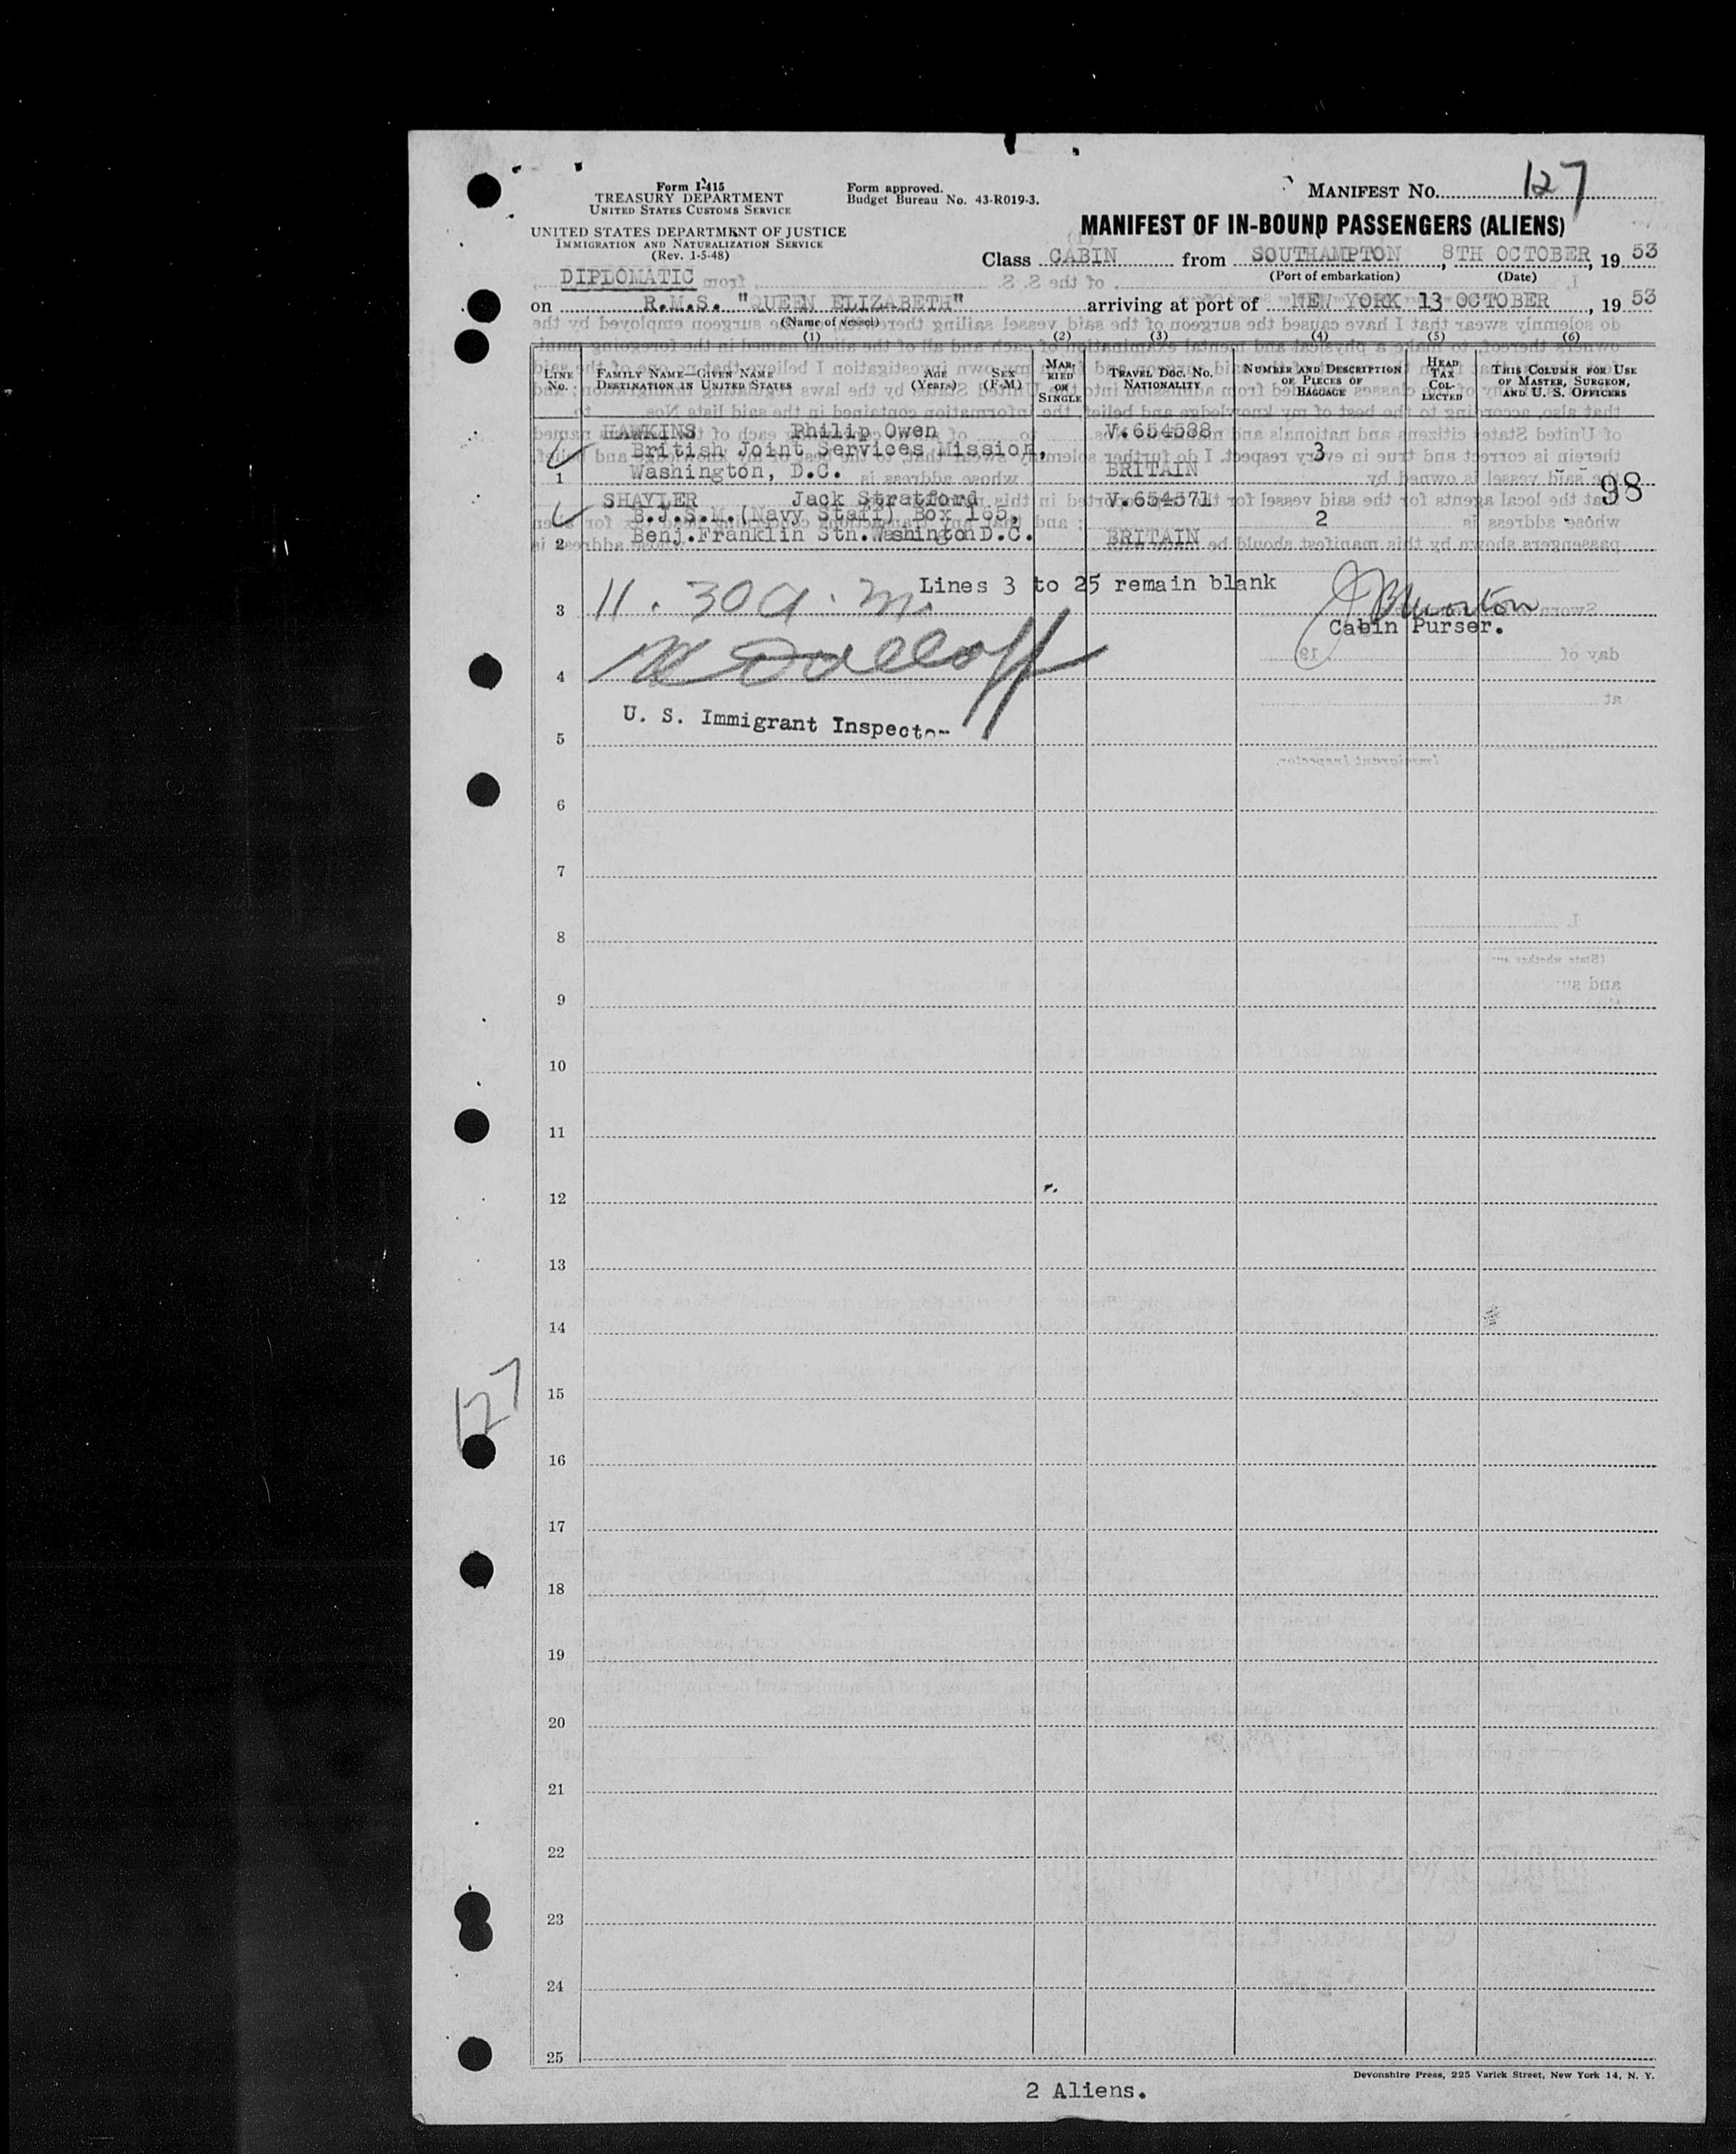 Form I-415
TREASURY DEPARTMENT
UNITED STATES CUSTOMS SERVICE
UNITED STATES DEPARTMENT OF JUSTICE
IMMIGRATION AND NATURALIZATION SERVICE
(Rev. 1-5-48)
Form approved.
Budget Bureau No. 43-R019-3.
MANIFEST NO. 127
MANIFEST OF IN-BOUND PASSENGERS (ALIENS)
Class CABIN from SOUTHAMPTON, 8TH OCTOBER, 19 53
(Port of embarkation) (Date)
DIPLOMATIC
on R.M.S. "QUEEN ELIZABETH" arriving at port of NEW YORK 13 OCTOBER, 19 53
(Name of vessel)
(1) (2) (3) (4) (5) (6)
LINE No. FAMILY NAME—GIVEN NAME DESTINATION IN UNITED STATES AGE (Years) SEX (F-M) MARRIED OR SINGLE TRAVEL DOC. No. NATIONALITY NUMBER AND DESCRIPTION OF PIECES OF BAGGAGE HEAD TAX COLLECTED THIS COLUMN FOR USE OF MASTER, SURGEON, AND U. S. OFFICERS
HAWKINS Philip Owen V.654588
British Joint Services Mission, 3
1 Washington, D.C. BRITAIN
98
SHAYLER Jack Stratford V.654571
B.J.S.M.(Navy Staff) Box 165, 2
2 Benj.Franklin Stn.Washington D.C. BRITAIN
Lines 3 to 25 remain blank
3 11.30 a.m.
Cabin Purser.
4
U. S. Immigrant Inspector
5
6
7
8
9
10
11
12
13
14
127
15
16
17
18
19
20
21
22
23
24
25
Devonshire Press, 225 Varick Street, New York 14, N. Y.
2 Aliens.